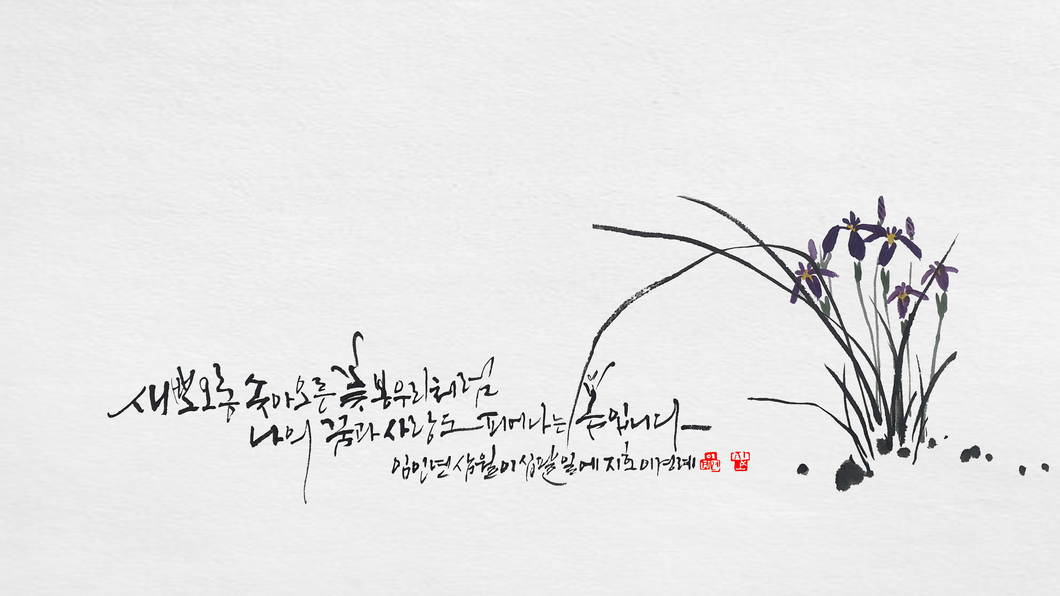 새뽀오롱 솟아오른 꽃봉우리처럼
나의 꿈과 사랑도 피어나는 봄입니다
임인년 삼월 이십팔일에 지호 이경례